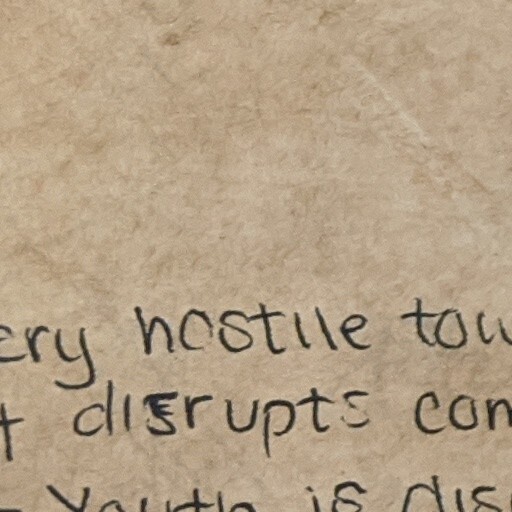 ery hostile tow
t disrupts com
Youth is dis